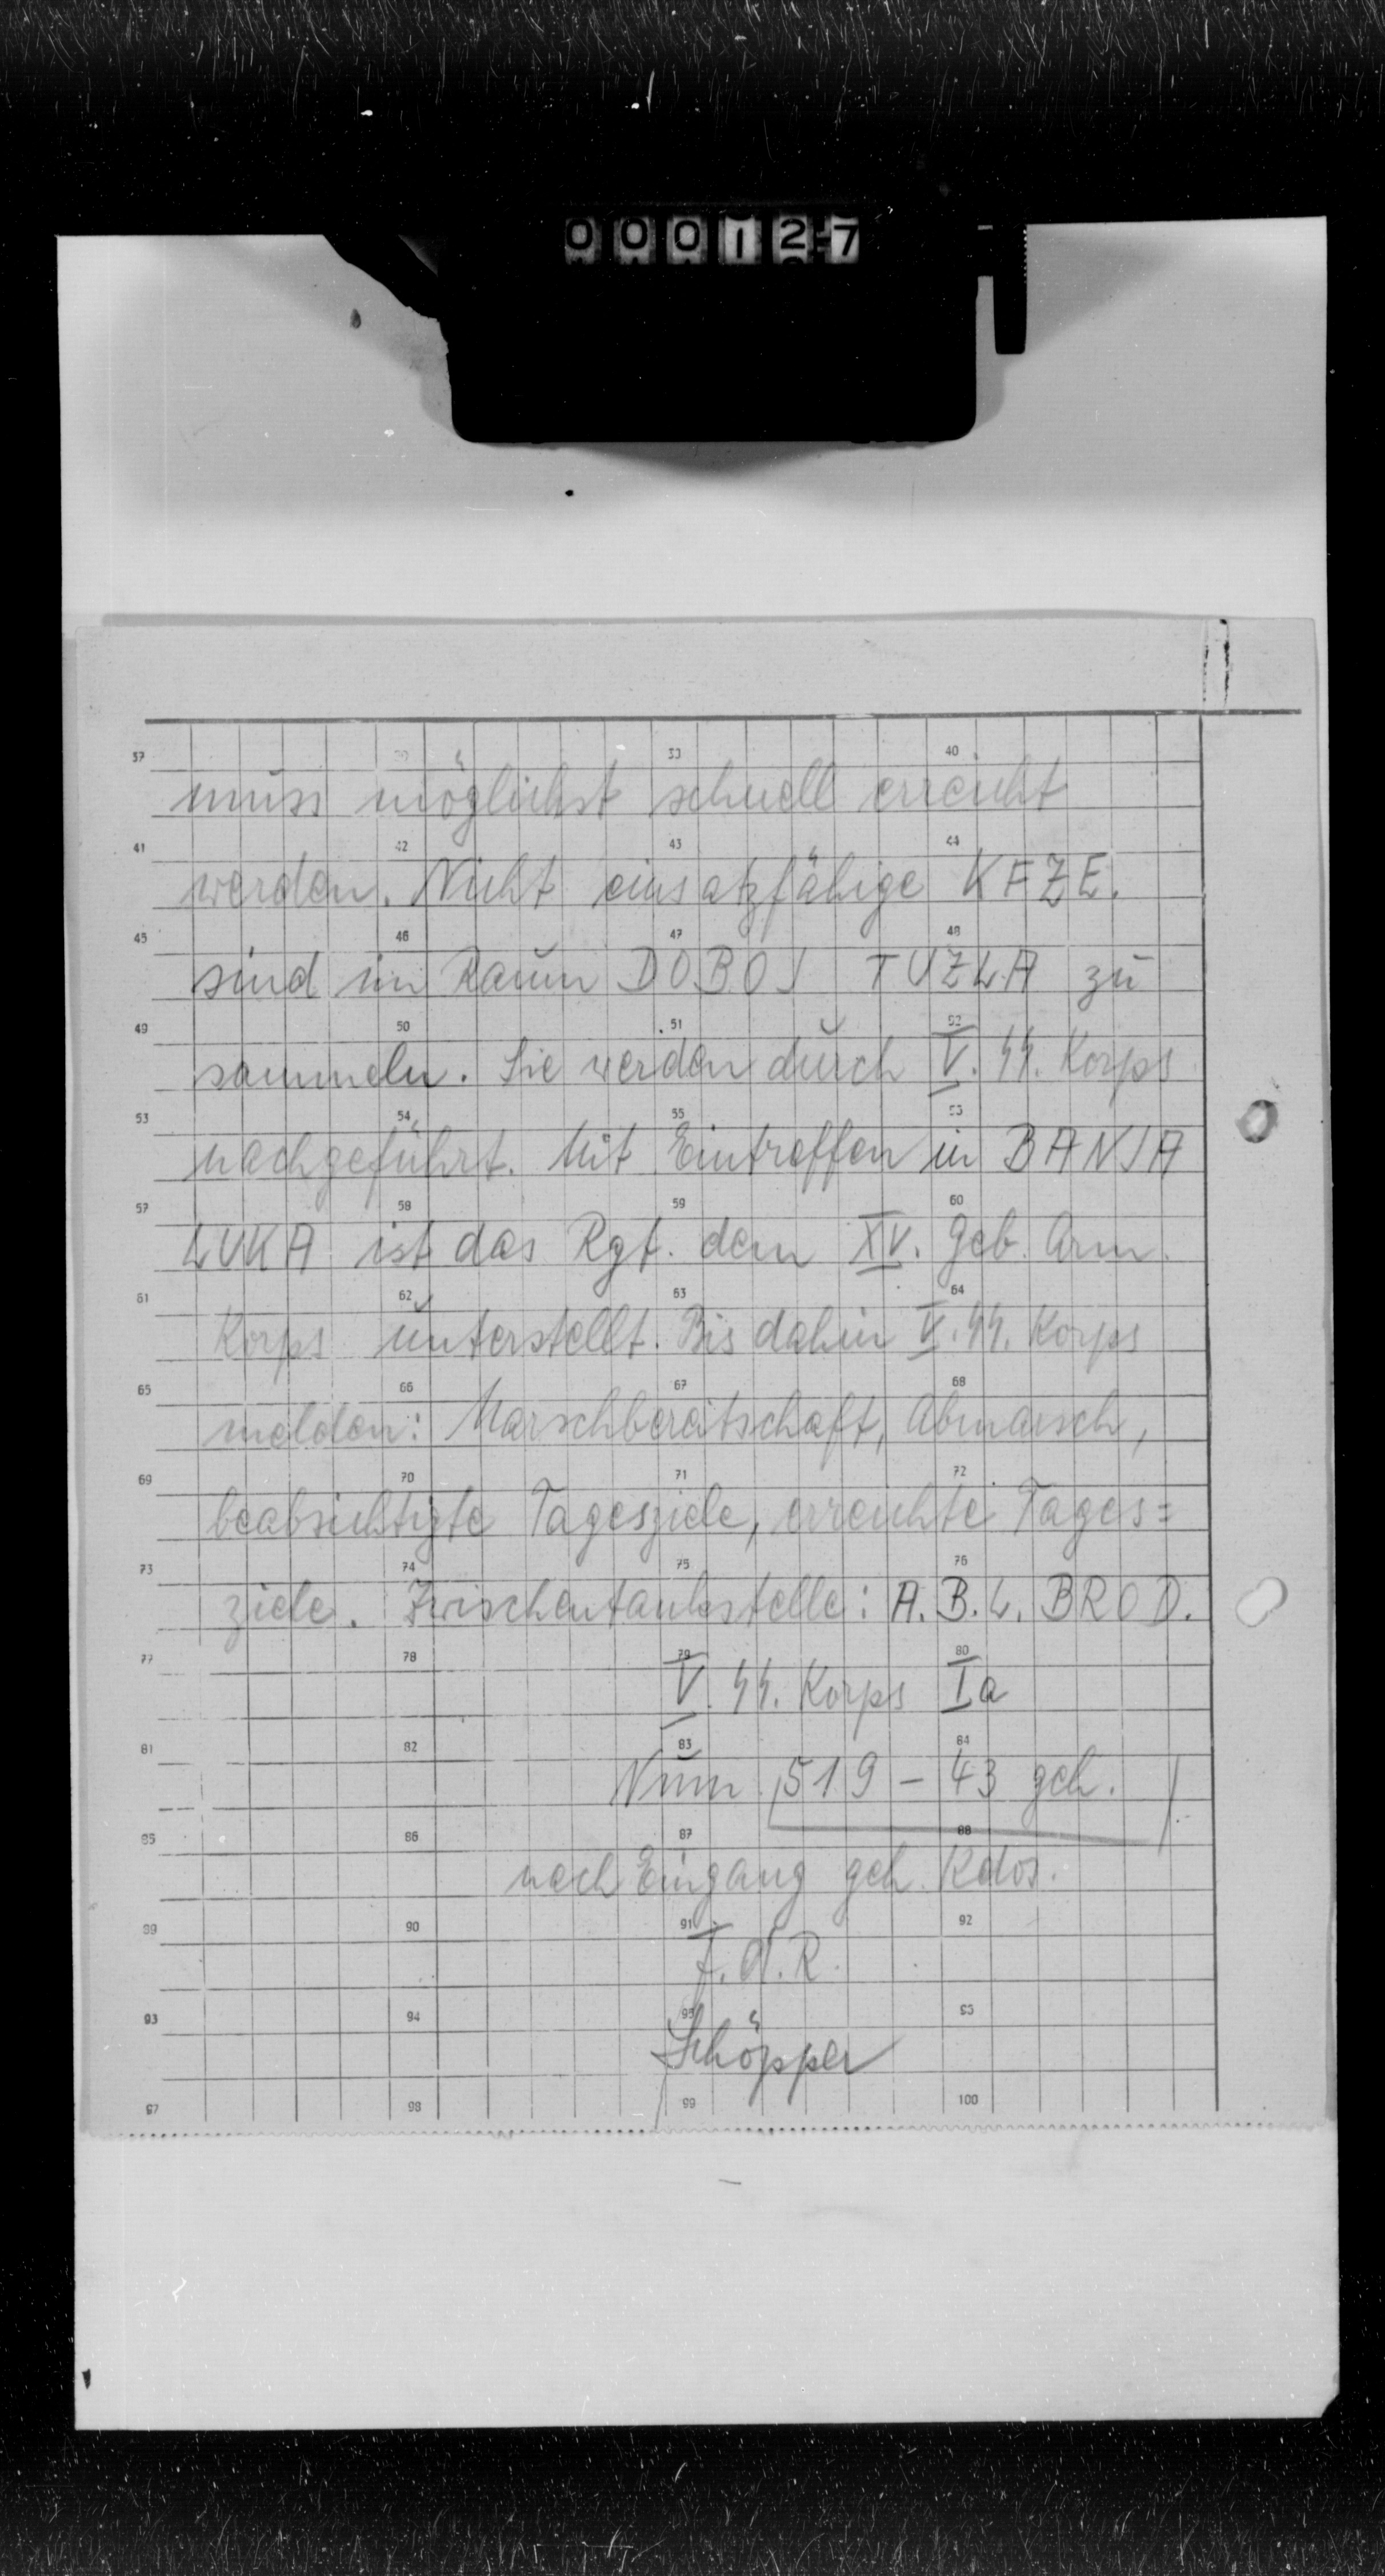 000127
37 39 40
muss möglichst schnell erreicht
41 42 43 44
werden. Nicht einsatzfähige KFZE.
45 46 47 48
sind im Raum DOBOJ TUZLA zu
49 50 51 52
sammeln. Sie werden durch V. SS. Korps
53 54 55 56
nachgeführt. Mit Eintreffen in BANJA
57 58 59 60
LUKA ist das Rgt. dem XV. Geb. Arm.
61 62 63 64
Korps unterstellt. Bis dahin V. SS. Korps
65 66 67 68
melden: Marschbereitschaft, Abmarsch,
69 70 71 72
beabsichtigte Tagesziele, erreichte Tages=
73 74 75 76
ziele. Zwischentankstelle: A.B.L. BROD.
77 78 79 80
V. SS. Korps Ia
81 82 83 84
Num. 519 - 43 geh.
85 86 87 88
nach Eingang geh. Kdos.
89 90 91 92
F.d.R.
93 94 95 96
Schöpper
97 98 99 100